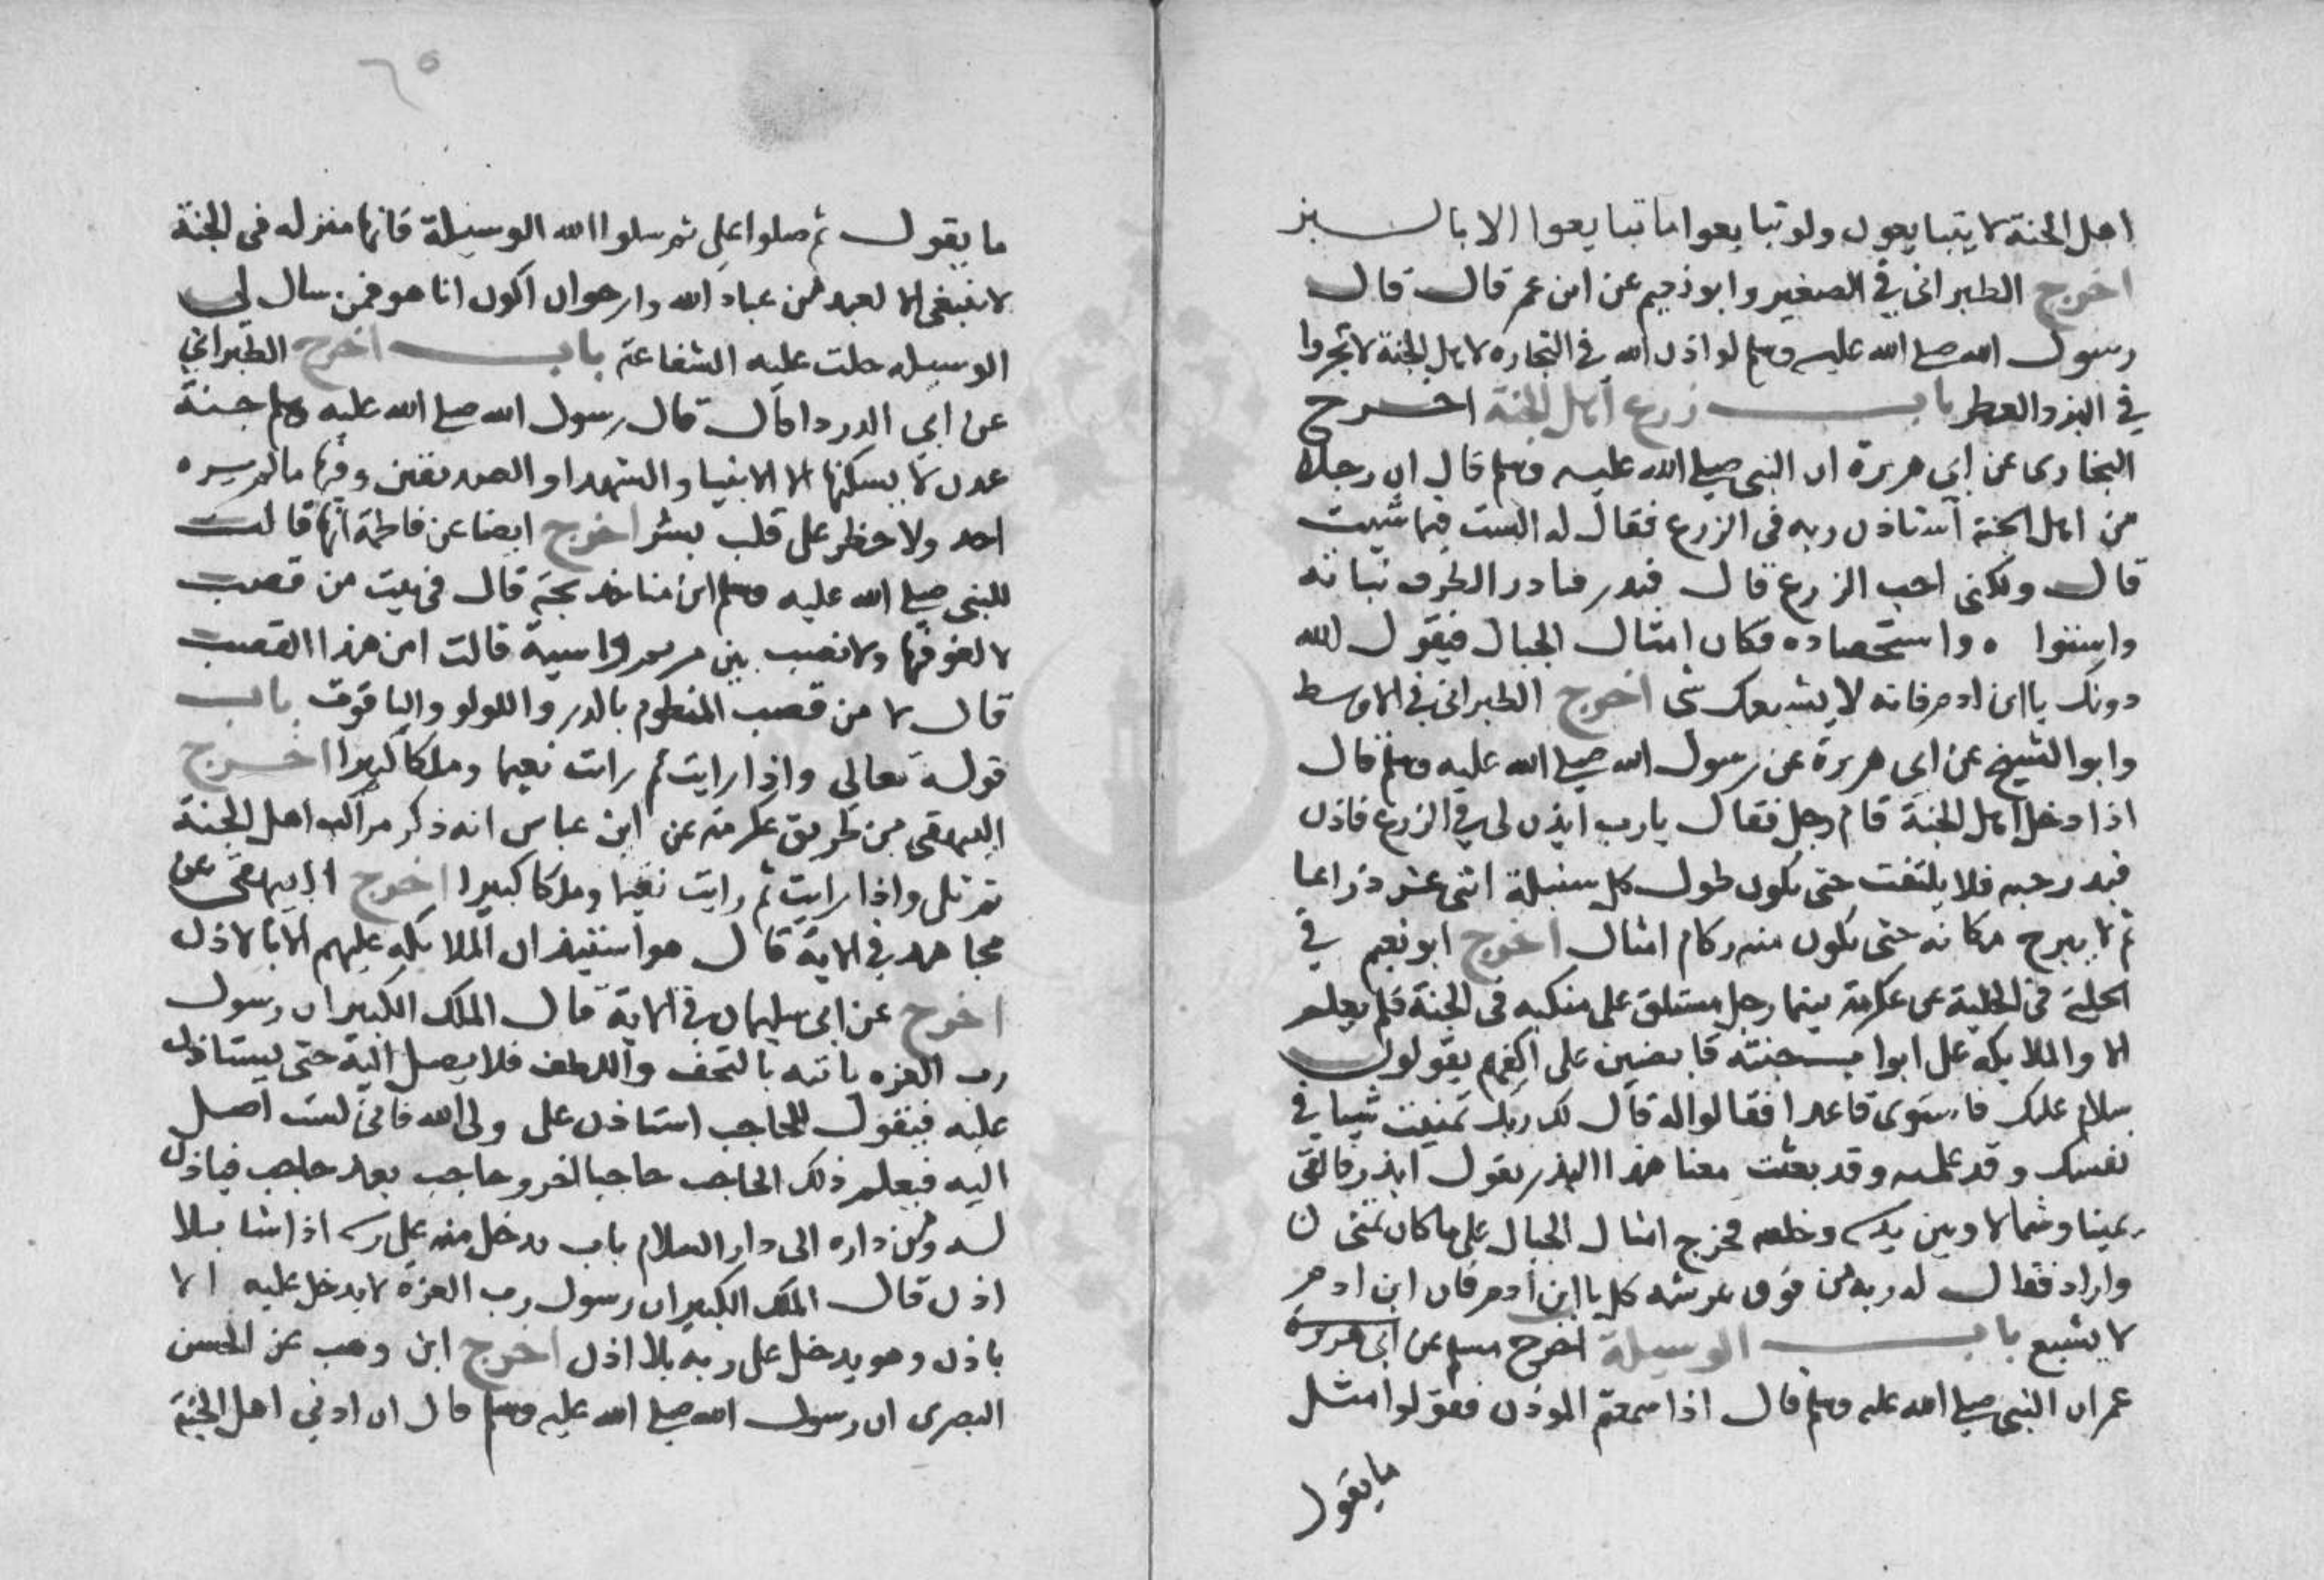 اهل الجنة لا يتبايعون ولو تبايعوا ما تبايعوا الا بالبز
اخرج الطبراني في الصغير وابو نعيم عن ابن عمر قال قال
رسول الله صلى الله عليه وسلم لو اذن الله في التجاره لاهل الجنة لاتجروا
في البز والعطر باب زرع اهل الجنة اخرج
البخارى عن ابي هريرة ان النبي صلى الله عليه وسلم قال ان رجلا
من اهل الجنة استاذن ربه فى الزرع فقال له الست فيما شيت
قال ولكنى احب الزرع قال فبدر فبادر الطرف نباته
واستواه واستحصاده فكان امثال الجبال فيقول الله
دونك يا ابن ادم فانه لا يشبعك شى اخرج الطبرانى في الاوسط
وابو الشيخ عن ابى هريرة عن رسول الله صلى الله عليه وسلم قال
اذا دخل اهل الجنة قام رجل فقال يارب ايذن لى في الزرع فاذن
فبدر حبه فلا يلتفت حتى يكون طول كل سنبلة اثنى عشر ذراعا
ثم لا يبرح مكانه حتى يكون منه ركام امثال اخرج ابو نعيم في
الحلية فى الحلية عن عكرمة بينما رجل مستلق على منكبه فى الجنة فلم يعلم
الا والملايكه على ابواب جنته قابضين على اكفهم يقولون
سلام عليك فاستوى قاعدا فقالوا له قال لك ربك تمنيت شيا في
نفسك وقد علمه وقد بعثت معنا هذا البذر يقول ابذر فالقى
يمينا وشمالا وبين يديه وخلفه فخرج امثال الجبال على ما كان تمنى
واراد فقال له ربه من فوق عرشه كل يا ابن ادم فان ابن ادم
لا يشبع باب الوسيلة اخرج مسلم عن ابى هريرة
عمر ان النبي صلى الله عليه وسلم قال اذا سمعتم الموذن فقولوا مثل
ما يقول
٦٥
ما يقول ثم صلوا على ثم سلوا الله الوسيلة فانها منزله فى الجنة
لا تنبغى الا لعبد من عباد الله وارجوا ان اكون انا هو فمن سال لي
الوسيله حلت عليه الشفاعة باب اخرج الطبراني
عن ابي الدرداء قال قال رسول الله صلى الله عليه وسلم جنة
عدن لا يسكنها الا الانبيا والشهدا والصديقين وفيها ما لم يره
احد ولا خطر على قلب بشر اخرج ايضا عن فاطمة انها قالت
للنبى صلى الله عليه وسلم اين امنا خديجة قال فى بيت من قصب
لا لغو فيها ولا نصب بين مريم واسية قالت امن هذا القصب
قال لا من قصب المنظوم بالدر واللولو والياقوت باب
قوله تعالى واذا رايت ثم رايت نعيما وملكا كبيرا اخرج
البيهقى من طريق عكرمة عن ابن عباس انه ذكر مراكب اهل الجنة
ثم تلى واذا رايت ثم رايت نعيما وملكا كبيرا اخرج البيهقى عن
مجاهد في الاية قال هو استيذان الملايكه عليهم الا بالاذن
اخرج عن ابى سليمان في الاية قال الملك الكبير ان رسول
رب العزه ياتيه بالتحف واللطف فلا يصل اليه حتى يستاذن
عليه فيقول للحاجب استاذن على ولى الله فانى لست اصل
اليه فيعلم ذلك الحاجب حاجبا اخر وحاجب بعد حاجب فياذن
له ومن داره الى دار السلام باب يدخل منه على ربه اذا شا بلا
اذن قال الملك الكبير ان رسول رب العزة لا يدخل عليه الا
باذن وهو يدخل على ربه بلا اذن اخرج ابن وهب عن الحسن
البصرى ان رسول الله صلى الله عليه وسلم قال ان ادنى اهل الجنة